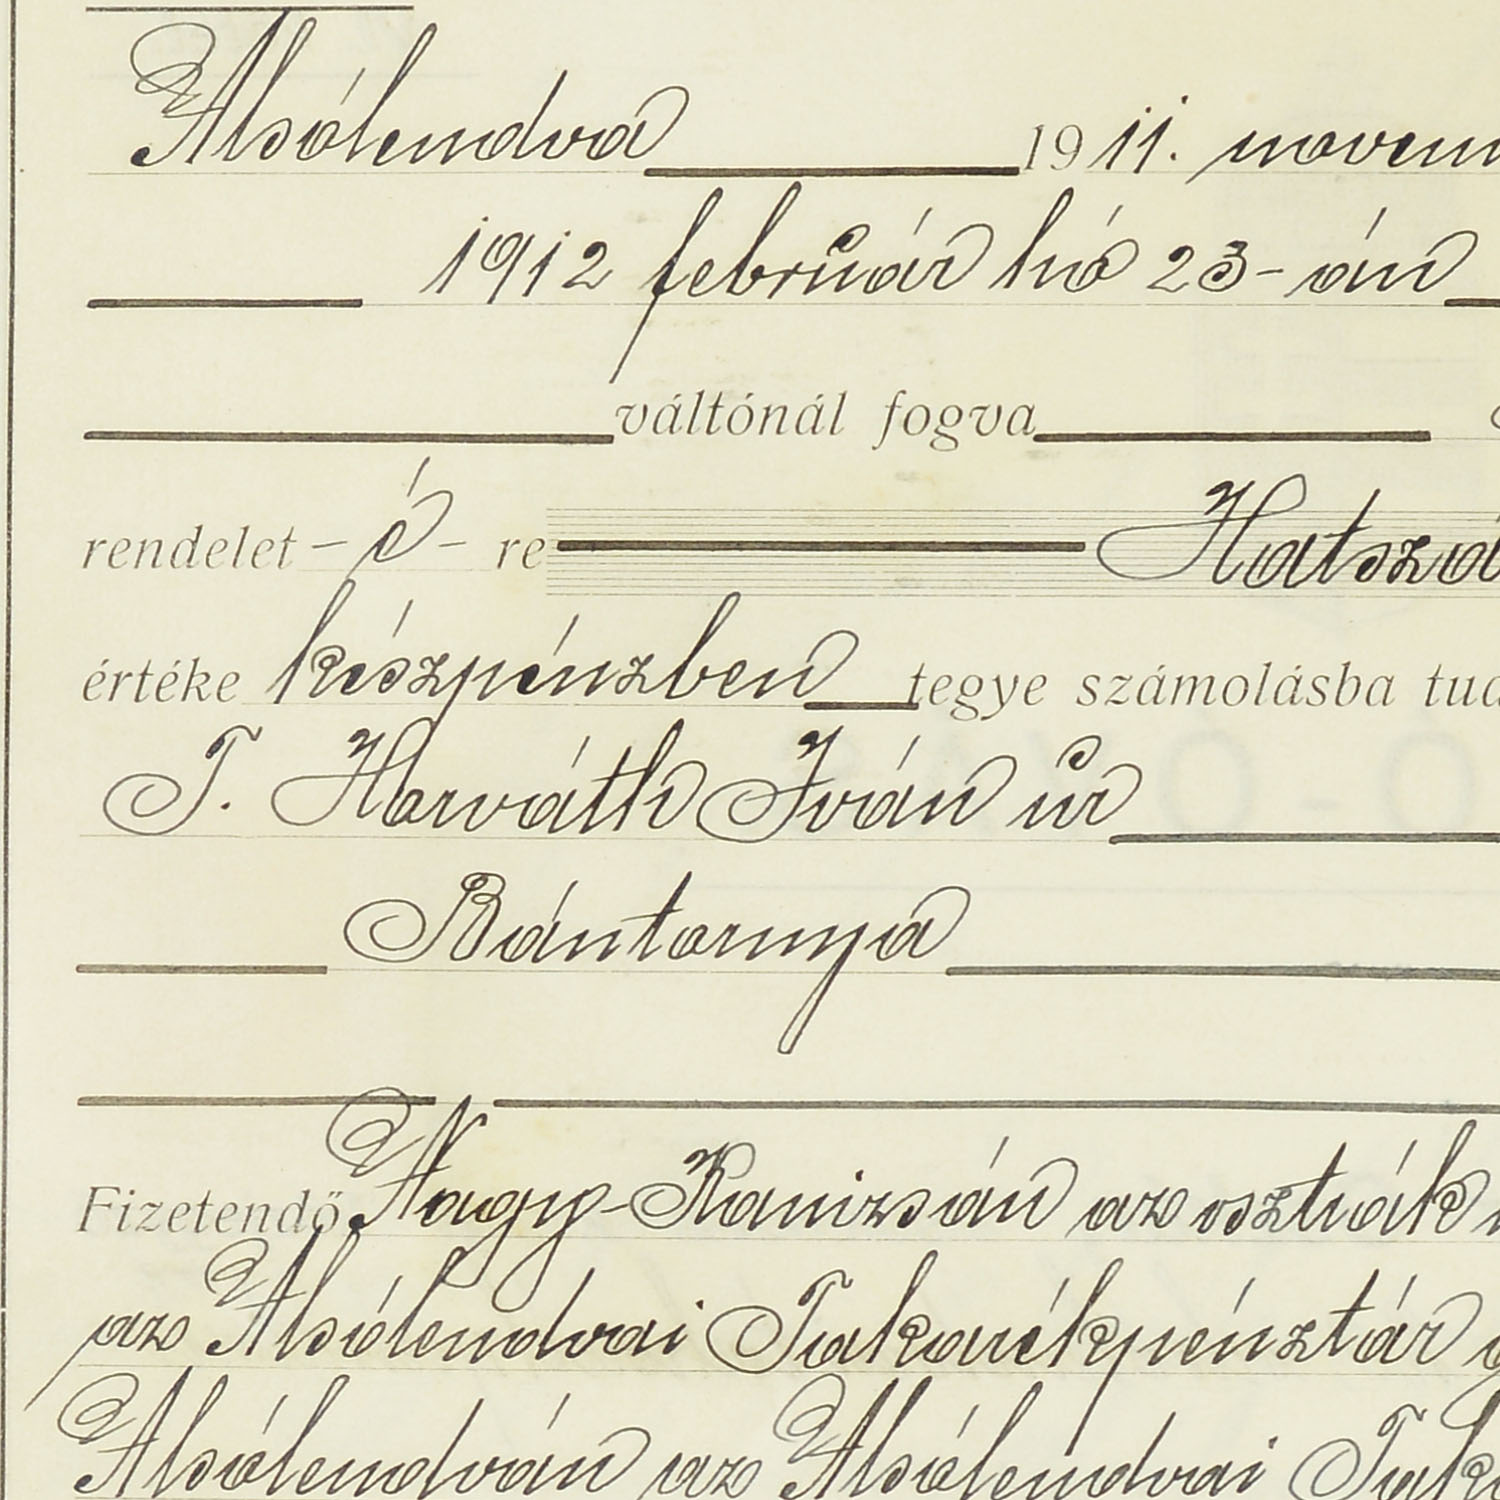 Alsólendva 1911. novem
1912 február hó 23-án
váltónál fogva
rendelet – é – re Hatszá
értéke készpénzben tegye számolásba tud
T. Horváth Iván úr
Bántornya
Fizetendő Nagy-Kanizsán az osztrák
az Alsólendvai Takarékpénztár
Alsólendván az Alsólendvai Tak